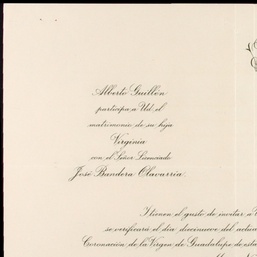 Alberto Guillén
participa a Ud. el
matrimonio de su hija
Virginia
con el Señor Licenciado
José Bandera Olavarría.
Y tienen el gusto de invitar a
se verificará el día diecinueve del actua
Coronación de la Virgen de Guadalupe de esta